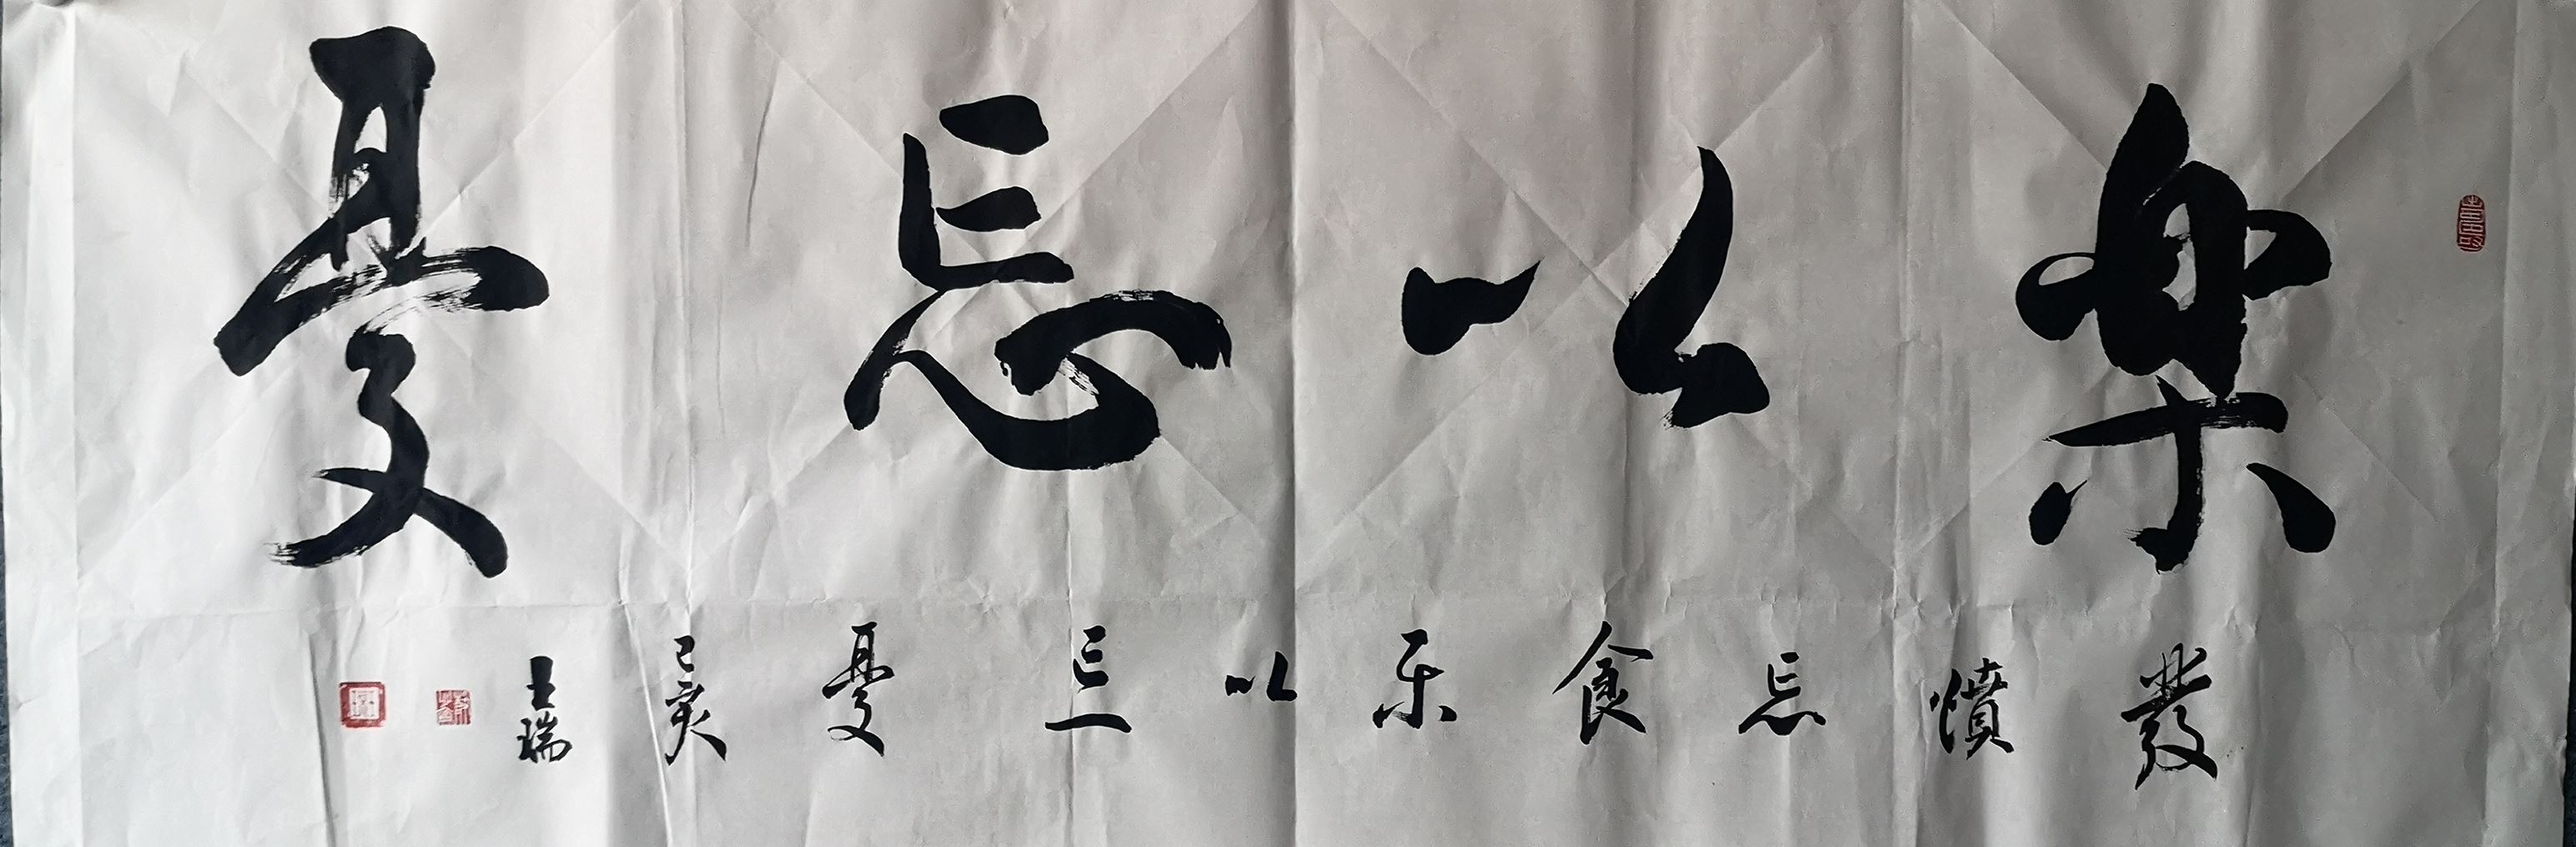 樂以忘憂
發憤忘食樂以忘憂己亥士瑞